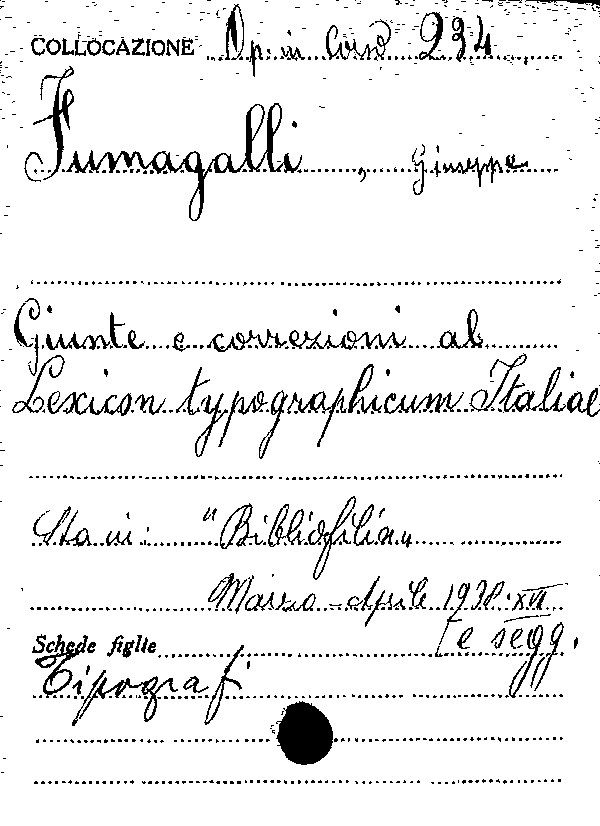 COLLOCAZIONE Op. in Corso 234
Fumagalli, Giuseppe
Giunte e correzioni al
Lexicon typographicum Italiae
Sta in: "Bibliofilia„
Marzo-Aprile 1938.XVI
[e segg.
Schede figlie
Tipografi